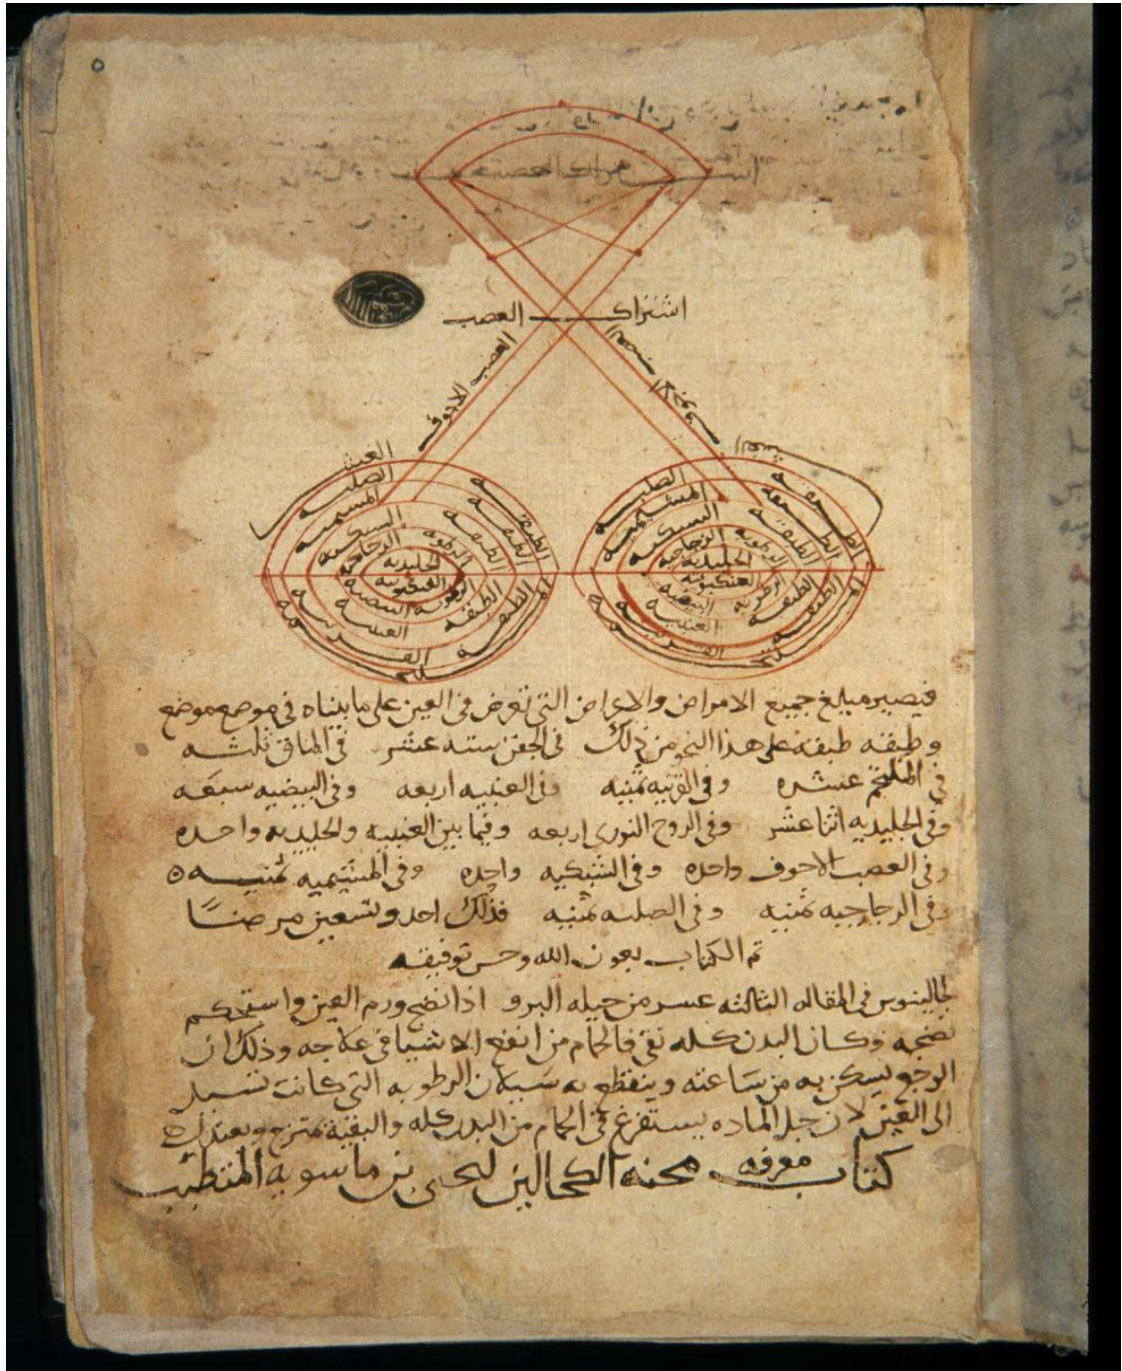 اشتراك العصب
العصب الاجوف
العصب الاجوف
الصلبه
المشيميه
الشبكيه
الزجاجيه
الرطوبه
الجليديه
العنكبوتيه
البيضيه
العنبيه
الطبقه
القرنيه
الملتحم
الصلبه
المشيميه
الشبكيه
الزجاجيه
الرطوبه
الجليديه
العنكبوتيه
البيضيه
العنبيه
الطبقه
القرنيه
الملتحم
فيصير مبلغ جميع الامراض والاعراض التى تعرض فى العين على ما بيناه فى موضع موضع
وطبقه طبقه على هذا النحو من ذلك فى الجفن سته عشر فى الماق ثلثه
فى الملتحم عشره وفى القرنيه ثمنيه وفى العنبيه اربعه وفى البيضيه سبعه
وفى الجليديه اثنا عشر وفى الروح النورى اربعه وفيما بين العنبيه والجليديه واحده
وفى العصب الاجوف واحده وفى الشبكيه واحده وفى المشيميه ثمنيه ه
وفى الزجاجيه ثمنيه وفى الصلبه ثمنيه فذلك احد وتسعين مرضًا
تم الكتاب بعون الله وحسن توفيقه
جالينوس فى المقاله الثالثه عشر من حيله البرو اذا نضج ورم العين واستحكم
نضجه وكان البدن كله نقى فالحمام من انفع الاشيا فى علاجه وذلك ان
الوجع يسكن به من ساعته وينقطع به سيلان الرطوبه التى كانت تسيل
الى العين لان جل الماده يستفرغ فى الحمام من البدن كله والبقيه تمتزج ويعتدل
كتاب معرفه محنه الكحالين ليحيى بن ماسويه المتطبب